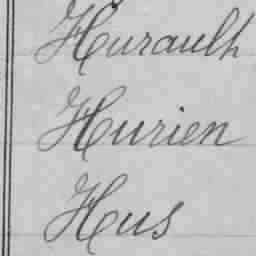 Hurault
Hurien
Hus